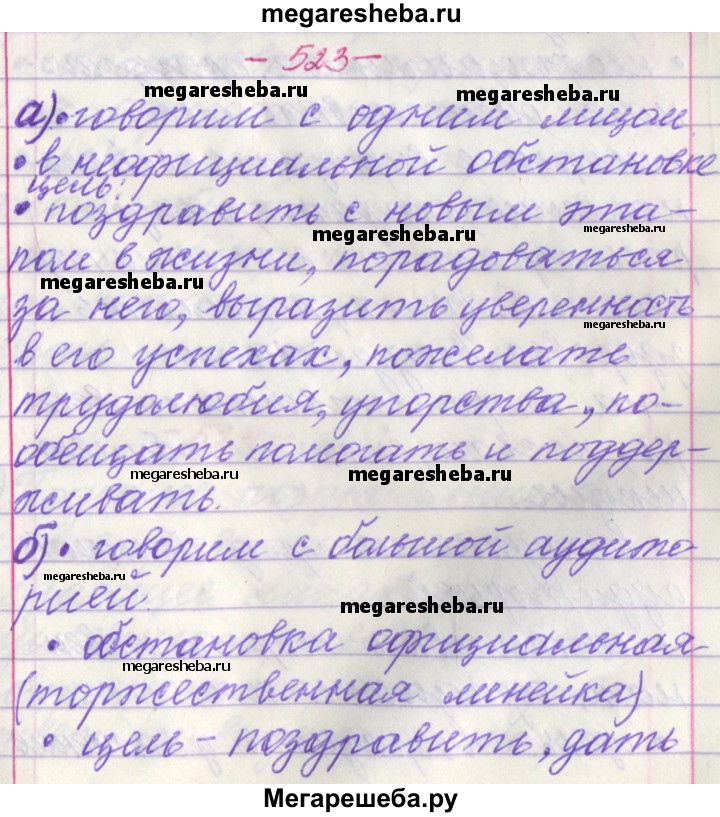 megaresheba.ru
- 523 -
megaresheba.ru
megaresheba.ru
а) • говорим с одним лицом
• в неофициальной обстановке
цель:
• поздравить с новым эта-
megaresheba.ru
megaresheba.ru
пом в жизни, порадоваться
megaresheba.ru
за него, выразить уверенность
megaresheba.ru
в его успехах, пожелать
трудолюбия, упорства, по-
обещать помогать и поддер-
megaresheba.ru
megaresheba.ru
живать.
б) • говорим с большой аудито-
megaresheba.ru
рией.
megaresheba.ru
• обстановка официальная
megaresheba.ru
(торжественная линейка)
• цель - поздравить, дать
Мегарешеба.ру